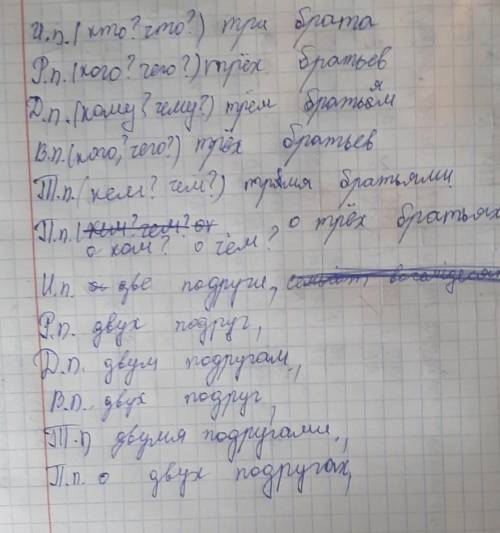 И.п. (кто? что?) три брата
Р.п. (кого? чего?) трёх братьев
Д.п. (кому? чему?) трём братьям
В.п. (кого? чего?) трёх братьев
Т.п. (кем? чем?) тремя братьями
П.п. (кем? чем? о ком? о чём? о трёх братьях
И.п. две подруги,
Р.п. двух подруг,
Д.п. двум подругам,
В.п. двух подруг,
Т.п двумя подругами,
П.п. о двух подругах,